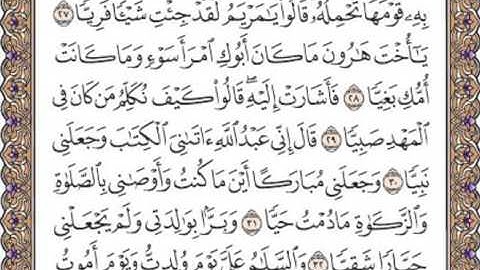 بِهِۦ قَوْمَهَا تَحْمِلُهُۥ ۖ قَالُوا۟ يَـٰمَرْيَمُ لَقَدْ جِئْتِ شَيْـًٔا فَرِيًّا ٢٧
يَـٰٓأُخْتَ هَـٰرُونَ مَا كَانَ أَبُوكِ ٱمْرَأَ سَوْءٍ وَمَا كَانَتْ
أُمُّكِ بَغِيًّا ٢٨ فَأَشَارَتْ إِلَيْهِ ۖ قَالُوا۟ كَيْفَ نُكَلِّمُ مَن كَانَ فِى
ٱلْمَهْدِ صَبِيًّا ٢٩ قَالَ إِنِّى عَبْدُ ٱللَّهِ ءَاتَىٰنِىَ ٱلْكِتَـٰبَ وَجَعَلَنِى
نَبِيًّا ٣٠ وَجَعَلَنِى مُبَارَكًا أَيْنَ مَا كُنتُ وَأَوْصَـٰنِى بِٱلصَّلَوٰةِ
وَٱلزَّكَوٰةِ مَا دُمْتُ حَيًّا ٣١ وَبَرًّۢا بِوَٰلِدَتِى وَلَمْ يَجْعَلْنِى
جَبَّارًا شَقِيًّا ٣٢ وَٱلسَّلَـٰمُ عَلَىَّ يَوْمَ وُلِدتُّ وَيَوْمَ أَمُوتُ